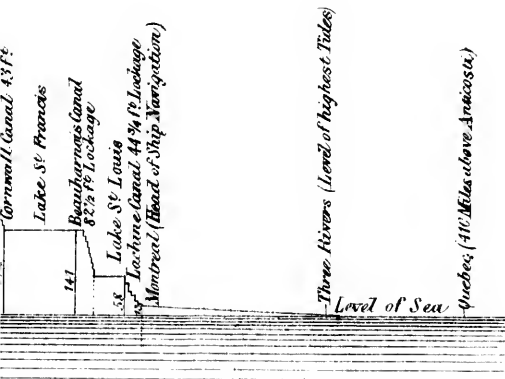 Cornwall Canal 43 ft
Lake St Francis
Beauharnois Canal
82½ ft Lockage
Lake St Louis
Lachine Canal 44¾ ft Lockage
Montreal (Head of Ship Navigation)
Three Rivers (Level of highest Tides)
Quebec, (410 Miles above Anticosti)
141
58
Level of Sea